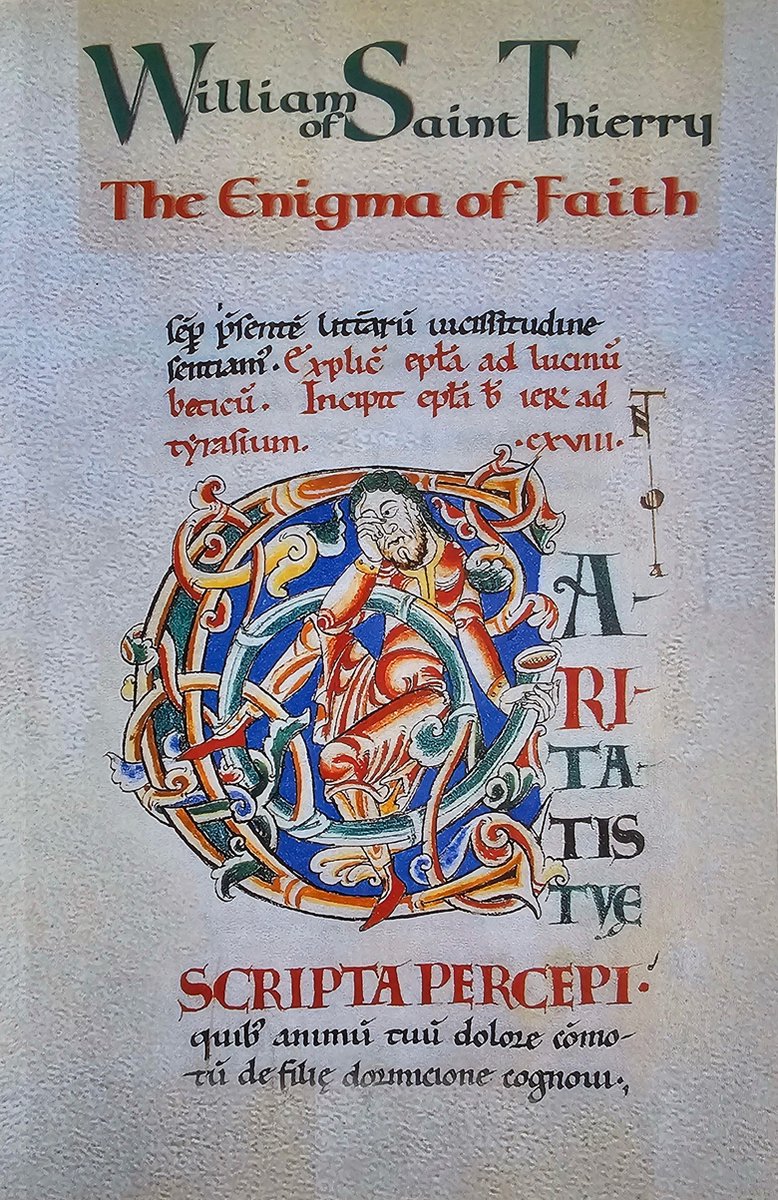 William
of Saint Thierry
The Enigma of Faith
sēp p̄sentē littārū uicissitudine
sentiam᷒. Explic̄ ep̄ła ad lucinū
beticū. Incipit ep̄ła b̄ ier᷒ ad
tyrasium. .cxviii.
C
A-
RI-
TA-
TIS
TVE
SCRIPTA PERCEPI.
quib᷒ animū tuū dolore cōmo-
tū de filię dormicione cognoui.,